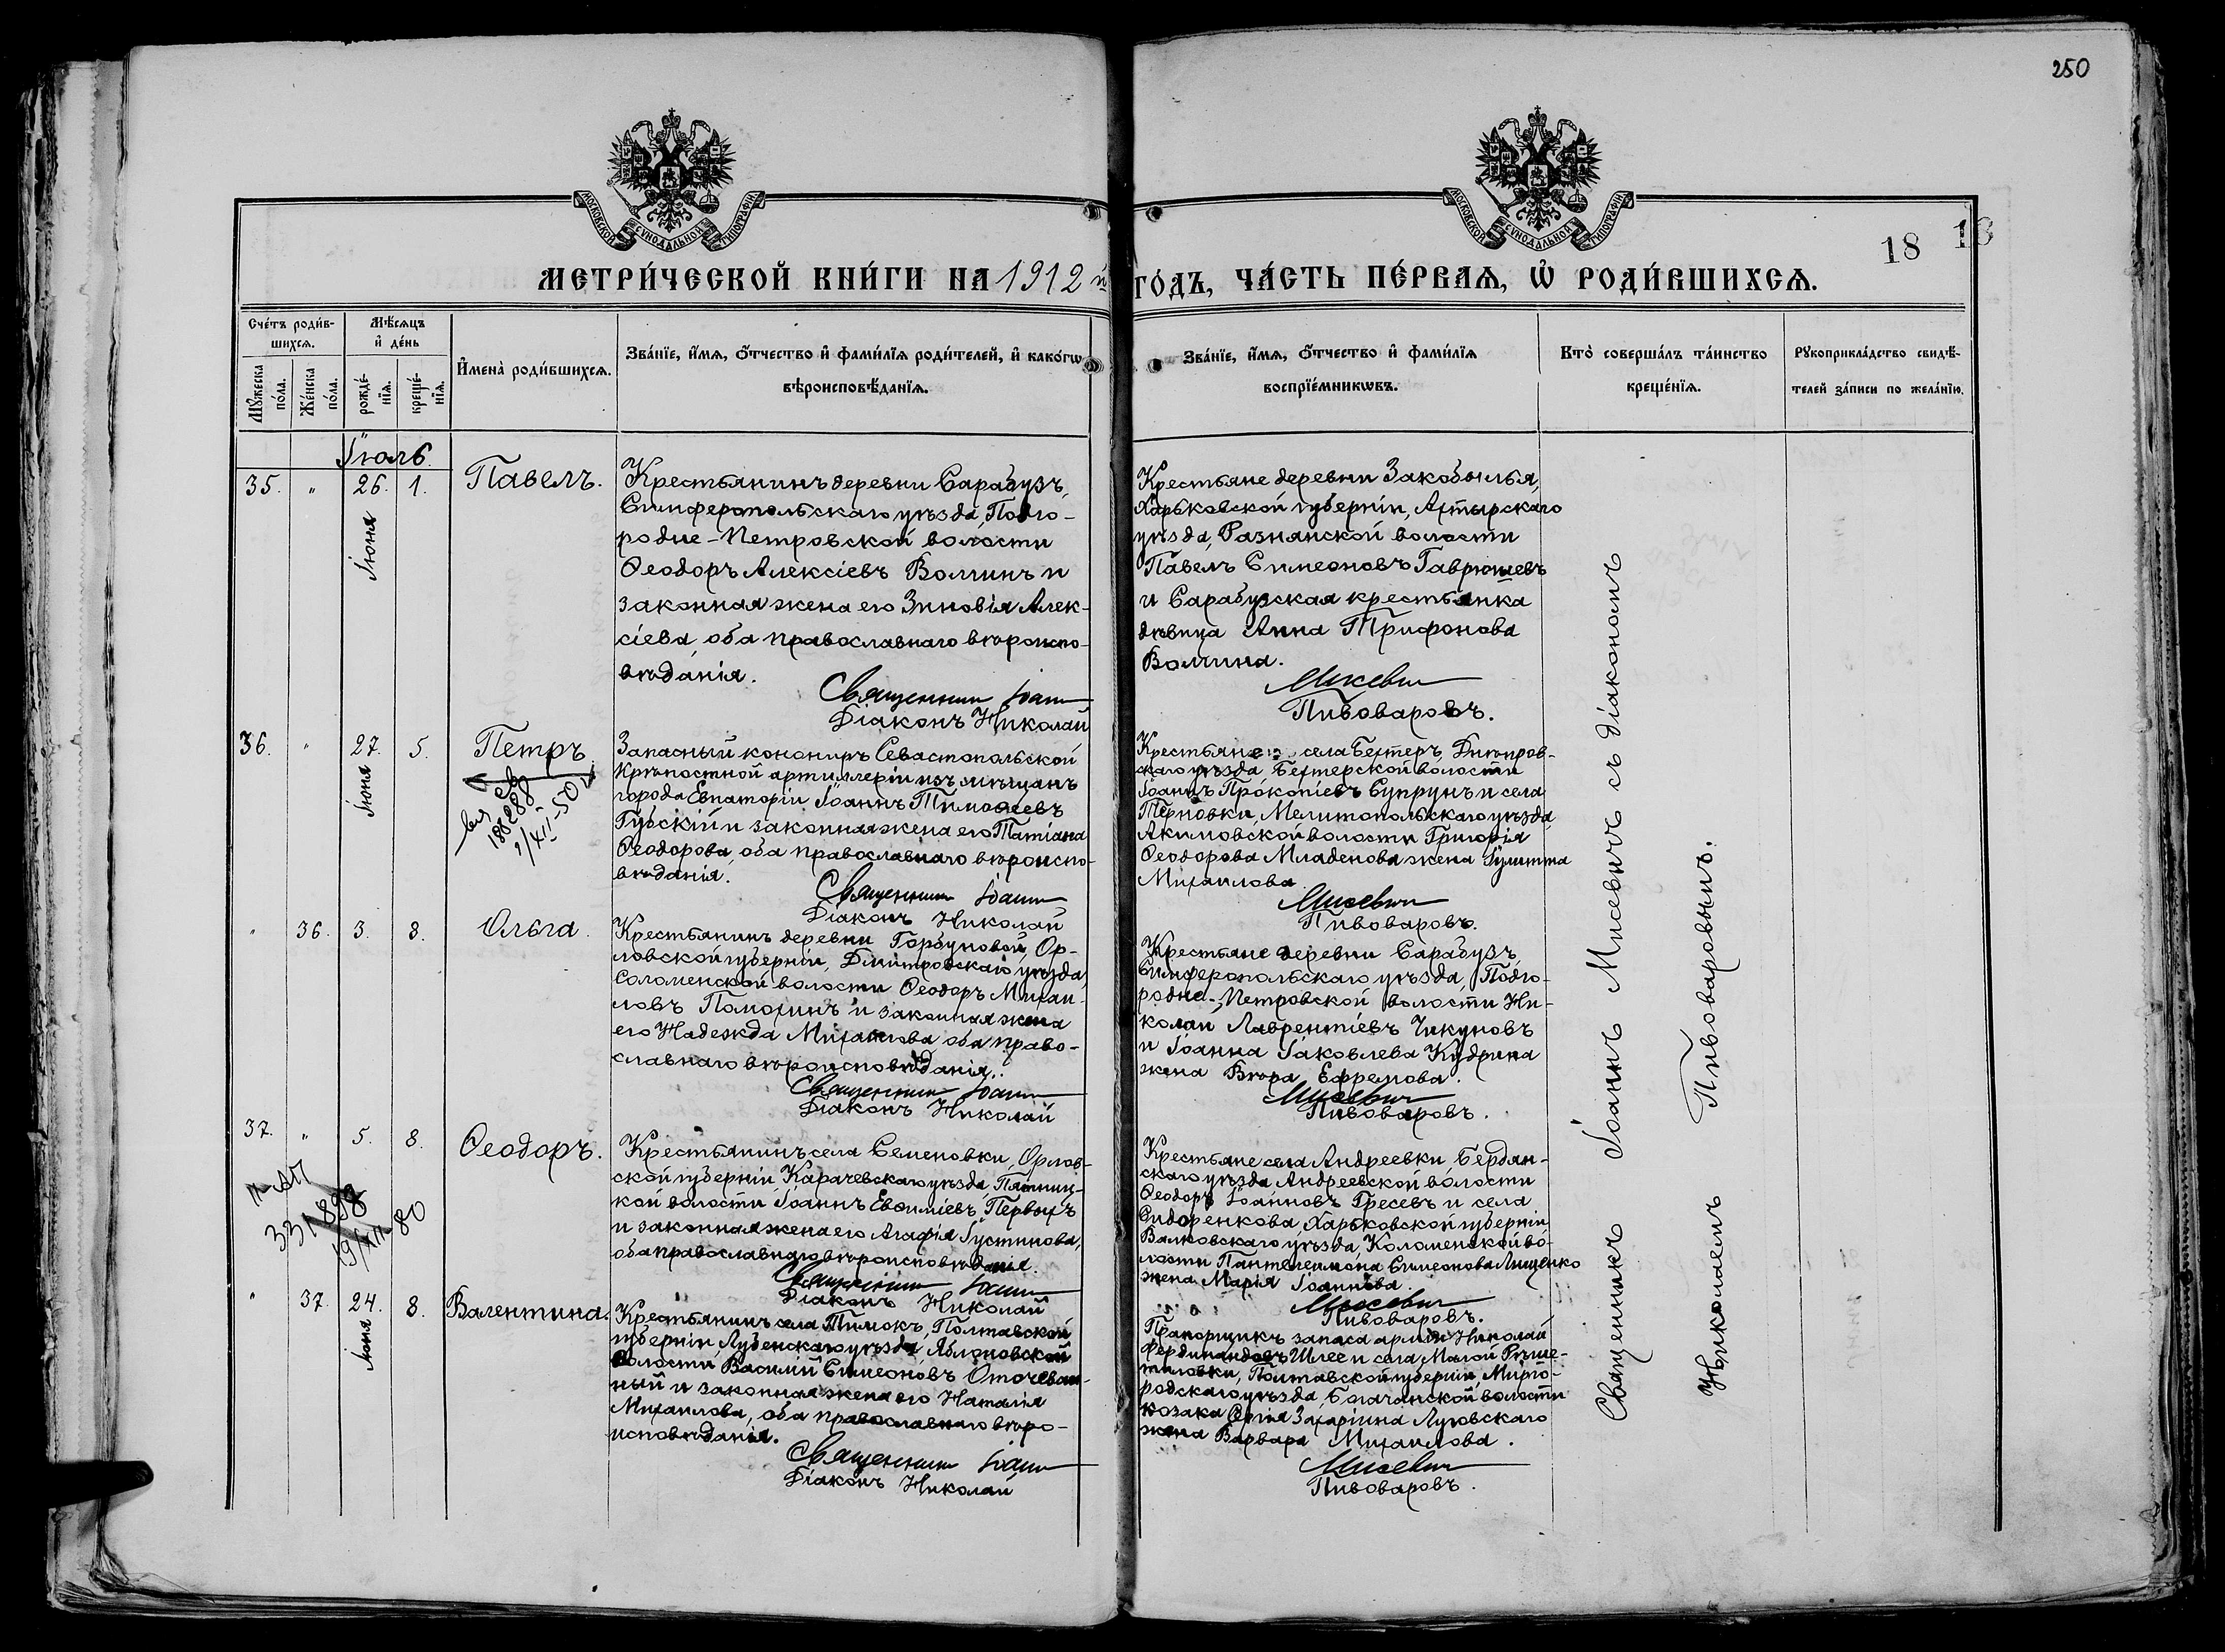 250
МОСКОВСКОЙ СУНОДАЛЬНОЙ ТИПОГРАФІИ
МОСКОВСКОЙ СУНОДАЛЬНОЙ ТИПОГРАФІИ
18 18
МЕТРИ́ЧЕСКОЙ КНИ́ГИ НА 1912 й
ГО́ДЪ, ЧА́СТЬ ПЕ́РВАѦ, Ѡ҆ РОДИ́ВШИХСѦ.
Сче́тъ роди́в-
шихсѧ.
Мѣ́сѧцъ
и҆ де́нь
Мꙋ́жеска
по́ла.
Же́нска
по́ла.
рожде́-
нїѧ.
креще́-
нїѧ.
И҆мена̀ роди́вшихсѧ.
Зва́нїе, и҆́мѧ, ѻ҆́тчество и҆ фами́лїѧ роди́телей, и҆ како́гѡ
вѣроисповѣ́данїѧ.
Зва́нїе, и҆́мѧ, ѻ҆́тчество и҆ фами́лїѧ
воспрїе́мникѡвъ.
Кто̀ соверша́лъ та́инство
креще́нїѧ.
Рꙋкоприкла́дство свидѣ́-
телей за́писи по жела́нїю.
Іюль
35. " 26. 1.
Іюня
Павелъ.
Крестьянинъ деревни Сарабузъ,
Симферопольскаго уѣзда, Подго-
родне-Петровской волости
Ѳеодоръ Алексіевъ Волчинъ и
законная жена его Зиновія Алек-
сіева, оба православнаго вѣроиспо-
вѣданія.
Священникъ Іоаннъ
Діаконъ Николай
Крестьяне деревни Закобылья,
Харьковской губерніи, Ахтырскаго
уѣзда, Разнянской волости
Павелъ Симеоновъ Гаврюшевъ
и Сарабузская крестьянка
дѣвица Анна Трифонова
Волчина.
Мисевичъ
Пивоваровъ.
36. " 27. 5.
Іюня
Петръ
188288
2/XII-50
Запасный канониръ Севастопольской
Крѣпостной артиллеріи изъ мѣщанъ
города Евпаторіи Іоаннъ Тимоѳеевъ
Губскій и законная жена его Татіана
Ѳеодорова, оба православнаго вѣроиспо-
вѣданія.
Священникъ Іоаннъ
Діаконъ Николай
Крестьяне: села Бехтеръ, Днѣпров-
скаго уѣзда, Бехтерской волости
Іоаннъ Прокопіевъ Супрунъ и села
Терновки, Мелитопольскаго уѣзда,
Акимовской волости Григорія
Ѳеодорова Младенова жена Іулитта
Михаилова.
Мисевичъ
Пивоваровъ.
" 36. 3. 8.
Ольга.
Крестьянинъ деревни Горбуновой, Ор-
ловской губерніи, Дмитровскаго уѣзда,
Соломенской волости Ѳеодоръ Михаи-
ловъ Помохинъ и законная жена
его Надежда Михаилова оба право-
славнаго вѣроисповѣданія.
Священникъ Іоаннъ
Діаконъ Николай
Крестьяне деревни Сарабузъ,
Симферопольскаго уѣзда, Подго-
родне-Петровской волости Ни-
колай Лаврентіевъ Чикуновъ
и Іоанна Іаковлева Кудрина
жена Вѣра Ефремова.
Мисевичъ
Пивоваровъ.
37. " 5. 8.
331898
19/XII 80
Ѳеодоръ.
Крестьянинъ села Семеновки, Орлов-
ской губерніи, Карачевскаго уѣзда, Пятниц-
кой волости Іоаннъ Евѳиміевъ Первыхъ
и законная жена его Агафія Іустинова,
оба православнаго вѣроисповѣданія.
Священникъ Іоаннъ
Діаконъ Николай
Крестьяне села Андреевки, Бердян-
скаго уѣзда Андреевской волости
Ѳеодоръ Іоанновъ Гресевъ и села
Сидоренкова Харьковской губерніи,
Валковскаго уѣзда, Коломенской во-
лости Пантелеимона Симеонова Лященко
жена Марія Іоаннова.
Мисевичъ
Пивоваровъ.
" 37. 24. 8.
Іюня
Валентина.
Крестьянинъ села Тимокъ, Полтавской
губерніи Лубенскаго уѣзда, Яблоновской
волости Василій Симеоновъ Оточеван-
ный и законная жена его Наталія
Михаилова, оба православнаго вѣро-
исповѣданія.
Священникъ Іоаннъ
Діаконъ Николай
Прапорщикъ запаса арміи Николай
Фердинандовъ Шлее и села Малой Рѣше-
тиловки, Полтавской губерніи, Мирго-
родскаго уѣзда, Богачанской волости
козака Сергія Захаріина Луговскаго
жена Варвара Михаилова.
Мисевичъ
Пивоваровъ.
Священникъ Іоаннъ Мисевичъ съ діакономъ
Николаемъ Пивоваровымъ.